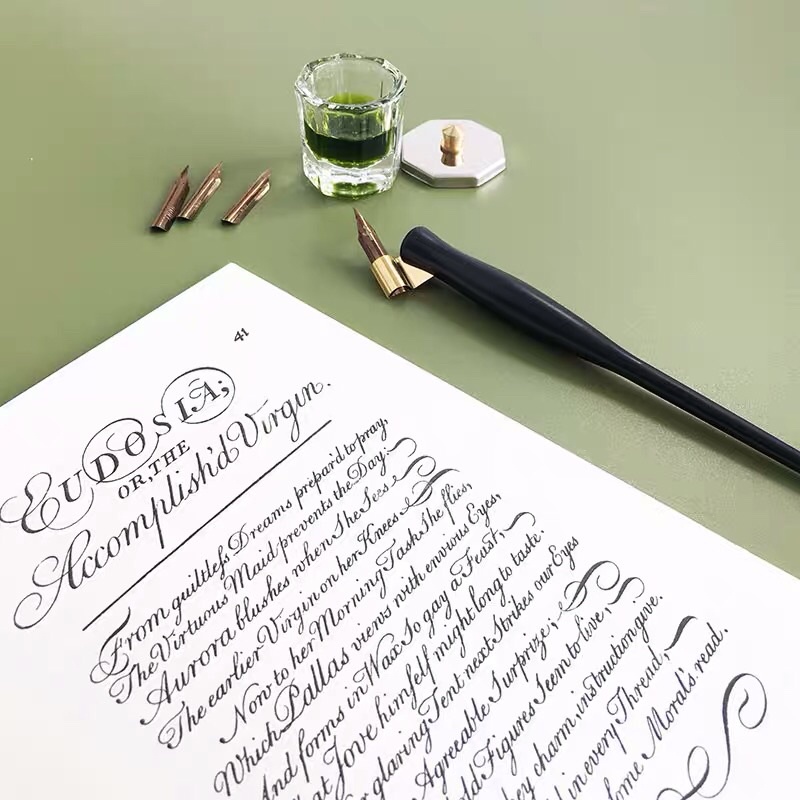 41
EUDOSIA;
OR, THE
Accomplish'd Virgin.
From guiltleſs Dreams prepar'd to pray,
The Virtuous Maid prevents the Day:
Aurora blushes when She Sees
The earlier Virgin on her Knees
Now to her Morning Task She flies,
Which Pallas views with envious Eyes,
And forms in Wax So gay a Feast,
at Jove himself might long to taste.
glaring Tent next Strikes our Eyes
Agreeable Surprize;
Figures Seem to live,
they charm, instruction give.
in every Thread,
Some Moral's read.